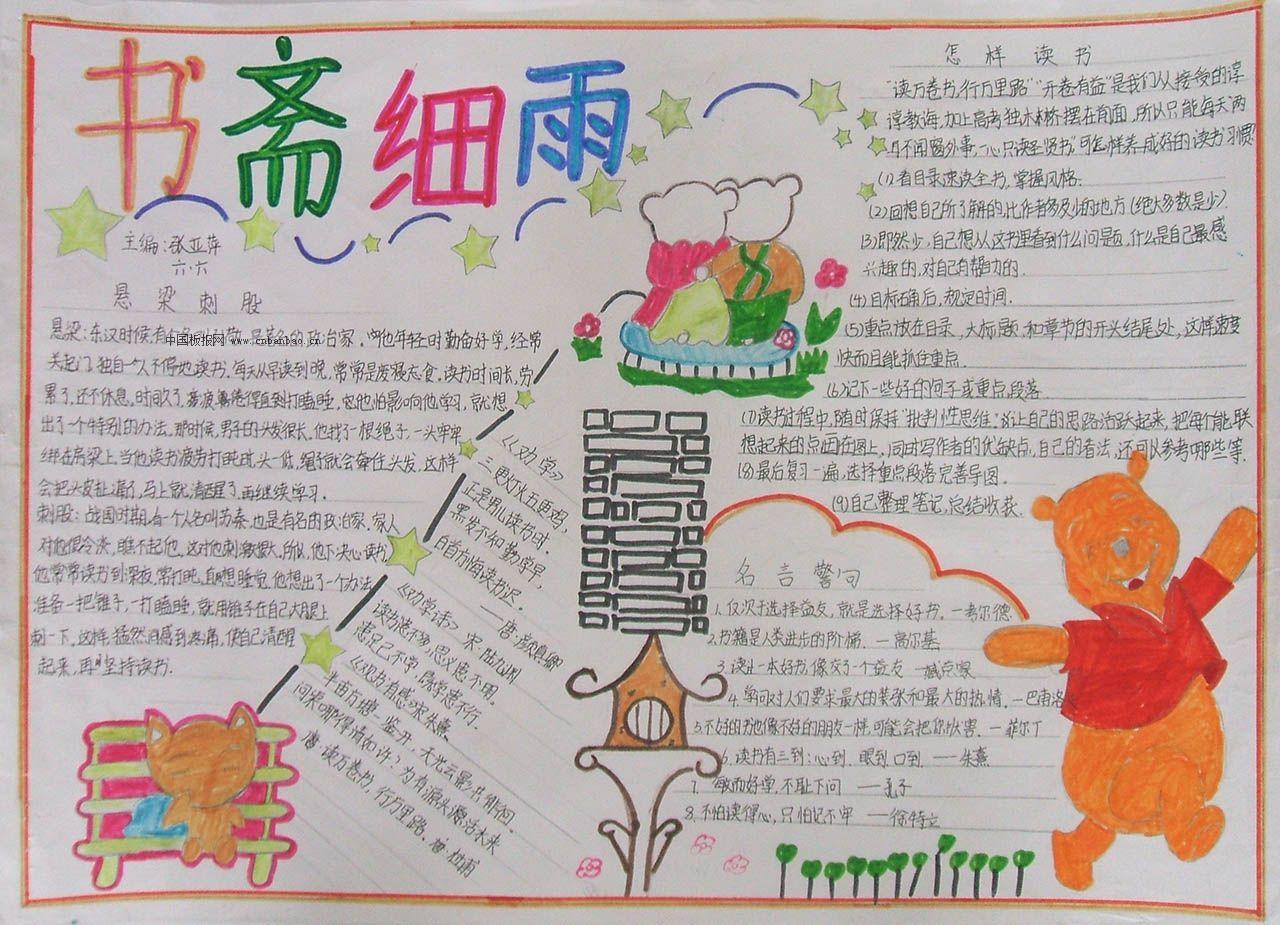 书斋细雨
主编:张亚萍
六.六
悬梁刺股
悬梁:东汉时候,有
是著名的政治家.
他年轻时勤奋好学,经常
中国板报网 www.cnbanbao.cn
关起门,独自一人不停地读书.每天从早读到晚,常常是废寝忘食.读书时间长,劳
累了,还不休息.时间久了,疲倦得直打瞌睡.他怕影响他学习,就想
出了一个特别的办法.那时候,男子的头发很长.他找了一根绳子,一头牢牢
绑在房梁上.当他读书疲劳打盹时,头一低,绳子就会牵住头发.这样
会把头皮扯痛了,马上就清醒了,再继续学习.
刺股:战国时期,有一个人名叫苏秦,也是有名的政治家.家人
对他很冷淡,瞧不起他.这对他刺激很大.所以,他下决心读书
他常常读书到深夜,常打盹,直想睡觉.他想出了一个办法
准备一把锥子,一打瞌睡,就用锥子在自己大腿上
刺一下.这样,猛然间感到疼痛,使自己清醒
起来,再坚持读书.
《劝学》
三更灯火五更鸡,
正是男儿读书时.
黑发不知勤学早,
白首方悔读书迟.
——唐·颜真卿
《劝学诗》 宋·陆九渊
读书患不多,思义患不明.
患足已不学,既学患不行.
《观书有感》宋朱熹
半亩方塘一鉴开,天光云影共徘徊.
问渠哪得清如许?为有源头活水来
读万卷书,行万里路.
怎样读书
“读万卷书,行万里路”“开卷有益”是我们从接受的谆
谆教诲.加上高考独木桥摆在前面,所以只能每天“两
耳不闻窗外事,一心只读圣贤书”可怎样养成好的读书习惯?
(1)看目录速读全书,掌握风格.
(2)回想自己所了解的,比作者多及少的地方(绝大多数是少)
(3)即然少,自己想从这书里看到什么问题,什么是自己最感
兴趣的,对自己有帮助的.
(4)目标确后,规定时间.
(5)重点放在目录,大标题和章节的开头结尾处,这样速度
快而且能抓住重点.
(6)记下一些好的句子或重点段落
(7)读书过程中,随时保持“批判性思维”让自己的思路活跃起来,把每个能联
想起来的点画在图上,同时写作者的优缺点,自己的看法,还可以参考哪些等.
(8)最后复习一遍,选择重点段落完善导图.
(9)自己整理笔记,总结收获.
名言警句
1.仅次于选择益友,就是选择好书.—考尔德
2.书籍是人类进步的阶梯.—高尔基
3.读一本好书,像交了一个益友—臧克家
4.学问对人们要求最大的紧张和最大的热情.—巴甫洛
5.不好的书也像不好的朋友一样,可能会把你伤害.—菲尔丁
6.读书有三到:心到、眼到、口到.—朱熹
7.敏而好学,不耻下问 —孔子
8.不怕读得少,只怕记不牢 —徐特立